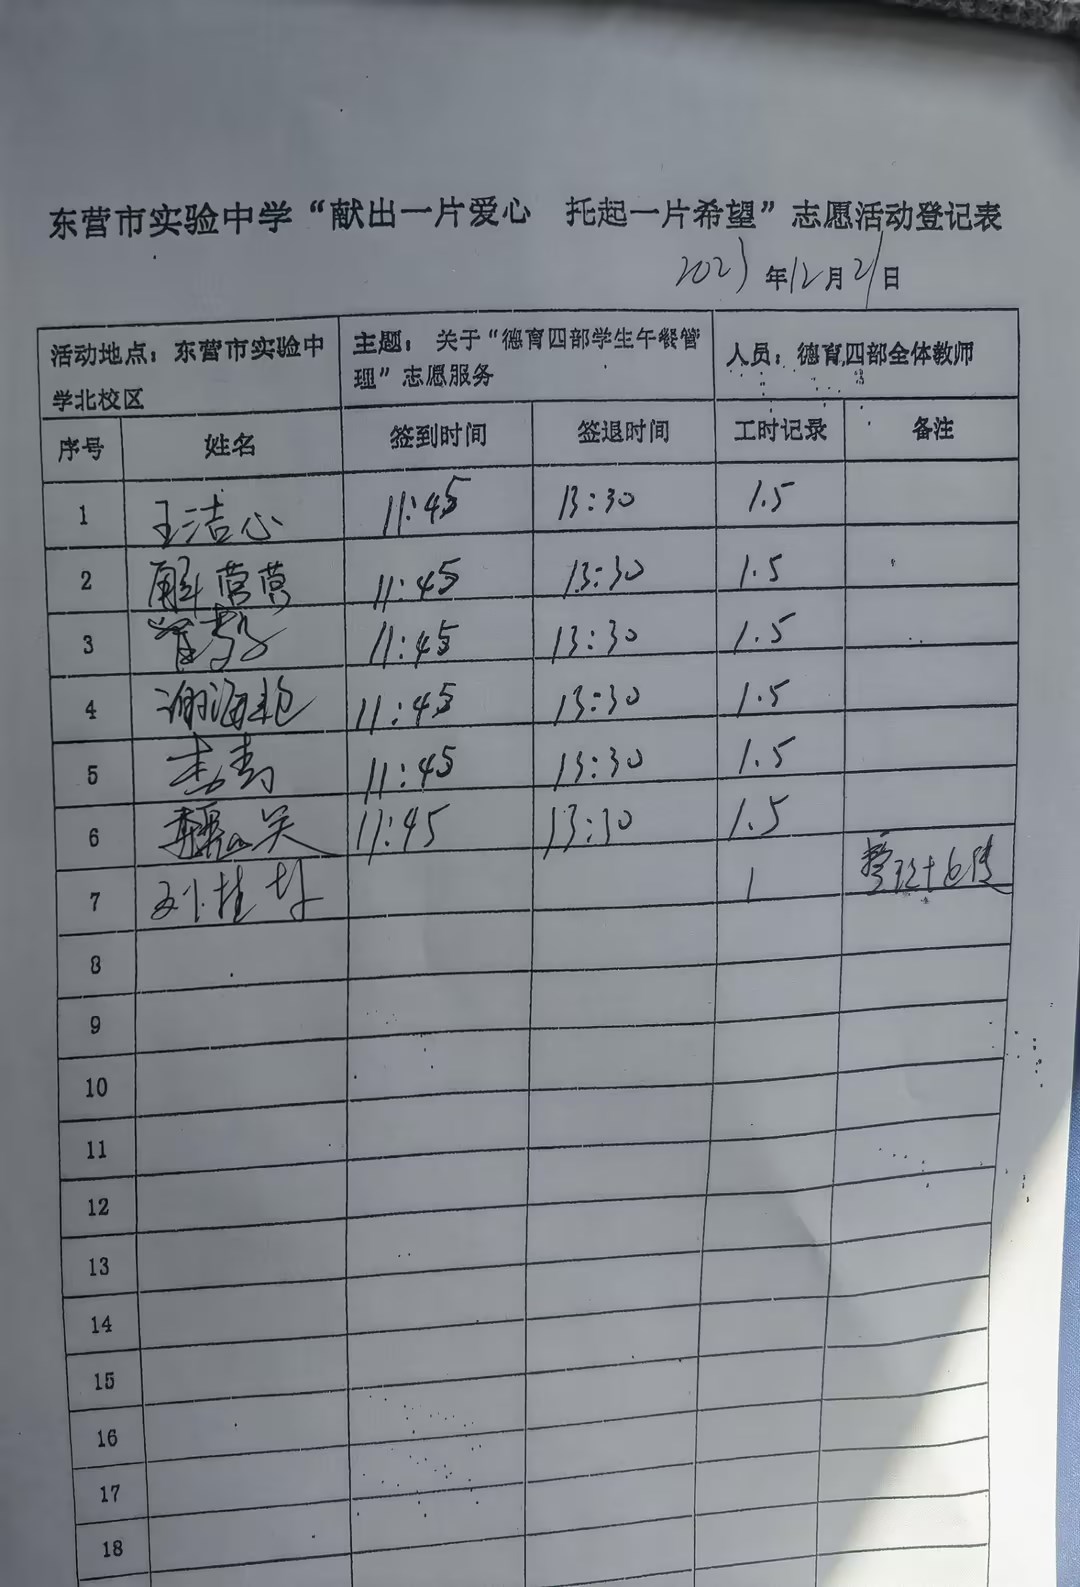 东营市实验中学“献出一片爱心 托起一片希望”志愿活动登记表
2023年12月21日
活动地点：东营市实验中学北校区 主题：关于“德育四部学生午餐管理”志愿服务 人员：德育四部全体教师
序号 姓名 签到时间 签退时间 工时记录 备注
1 王洁心 11:45 13:30 1.5
2 解营营 11:45 13:30 1.5
3 11:45 13:30 1.5
4 谢海艳 11:45 13:30 1.5
5 11:45 13:30 1.5
6 11:45 13:30 1.5
7 刘桂 1 整理+上传
8
9
10
11
12
13
14
15
16
17
18